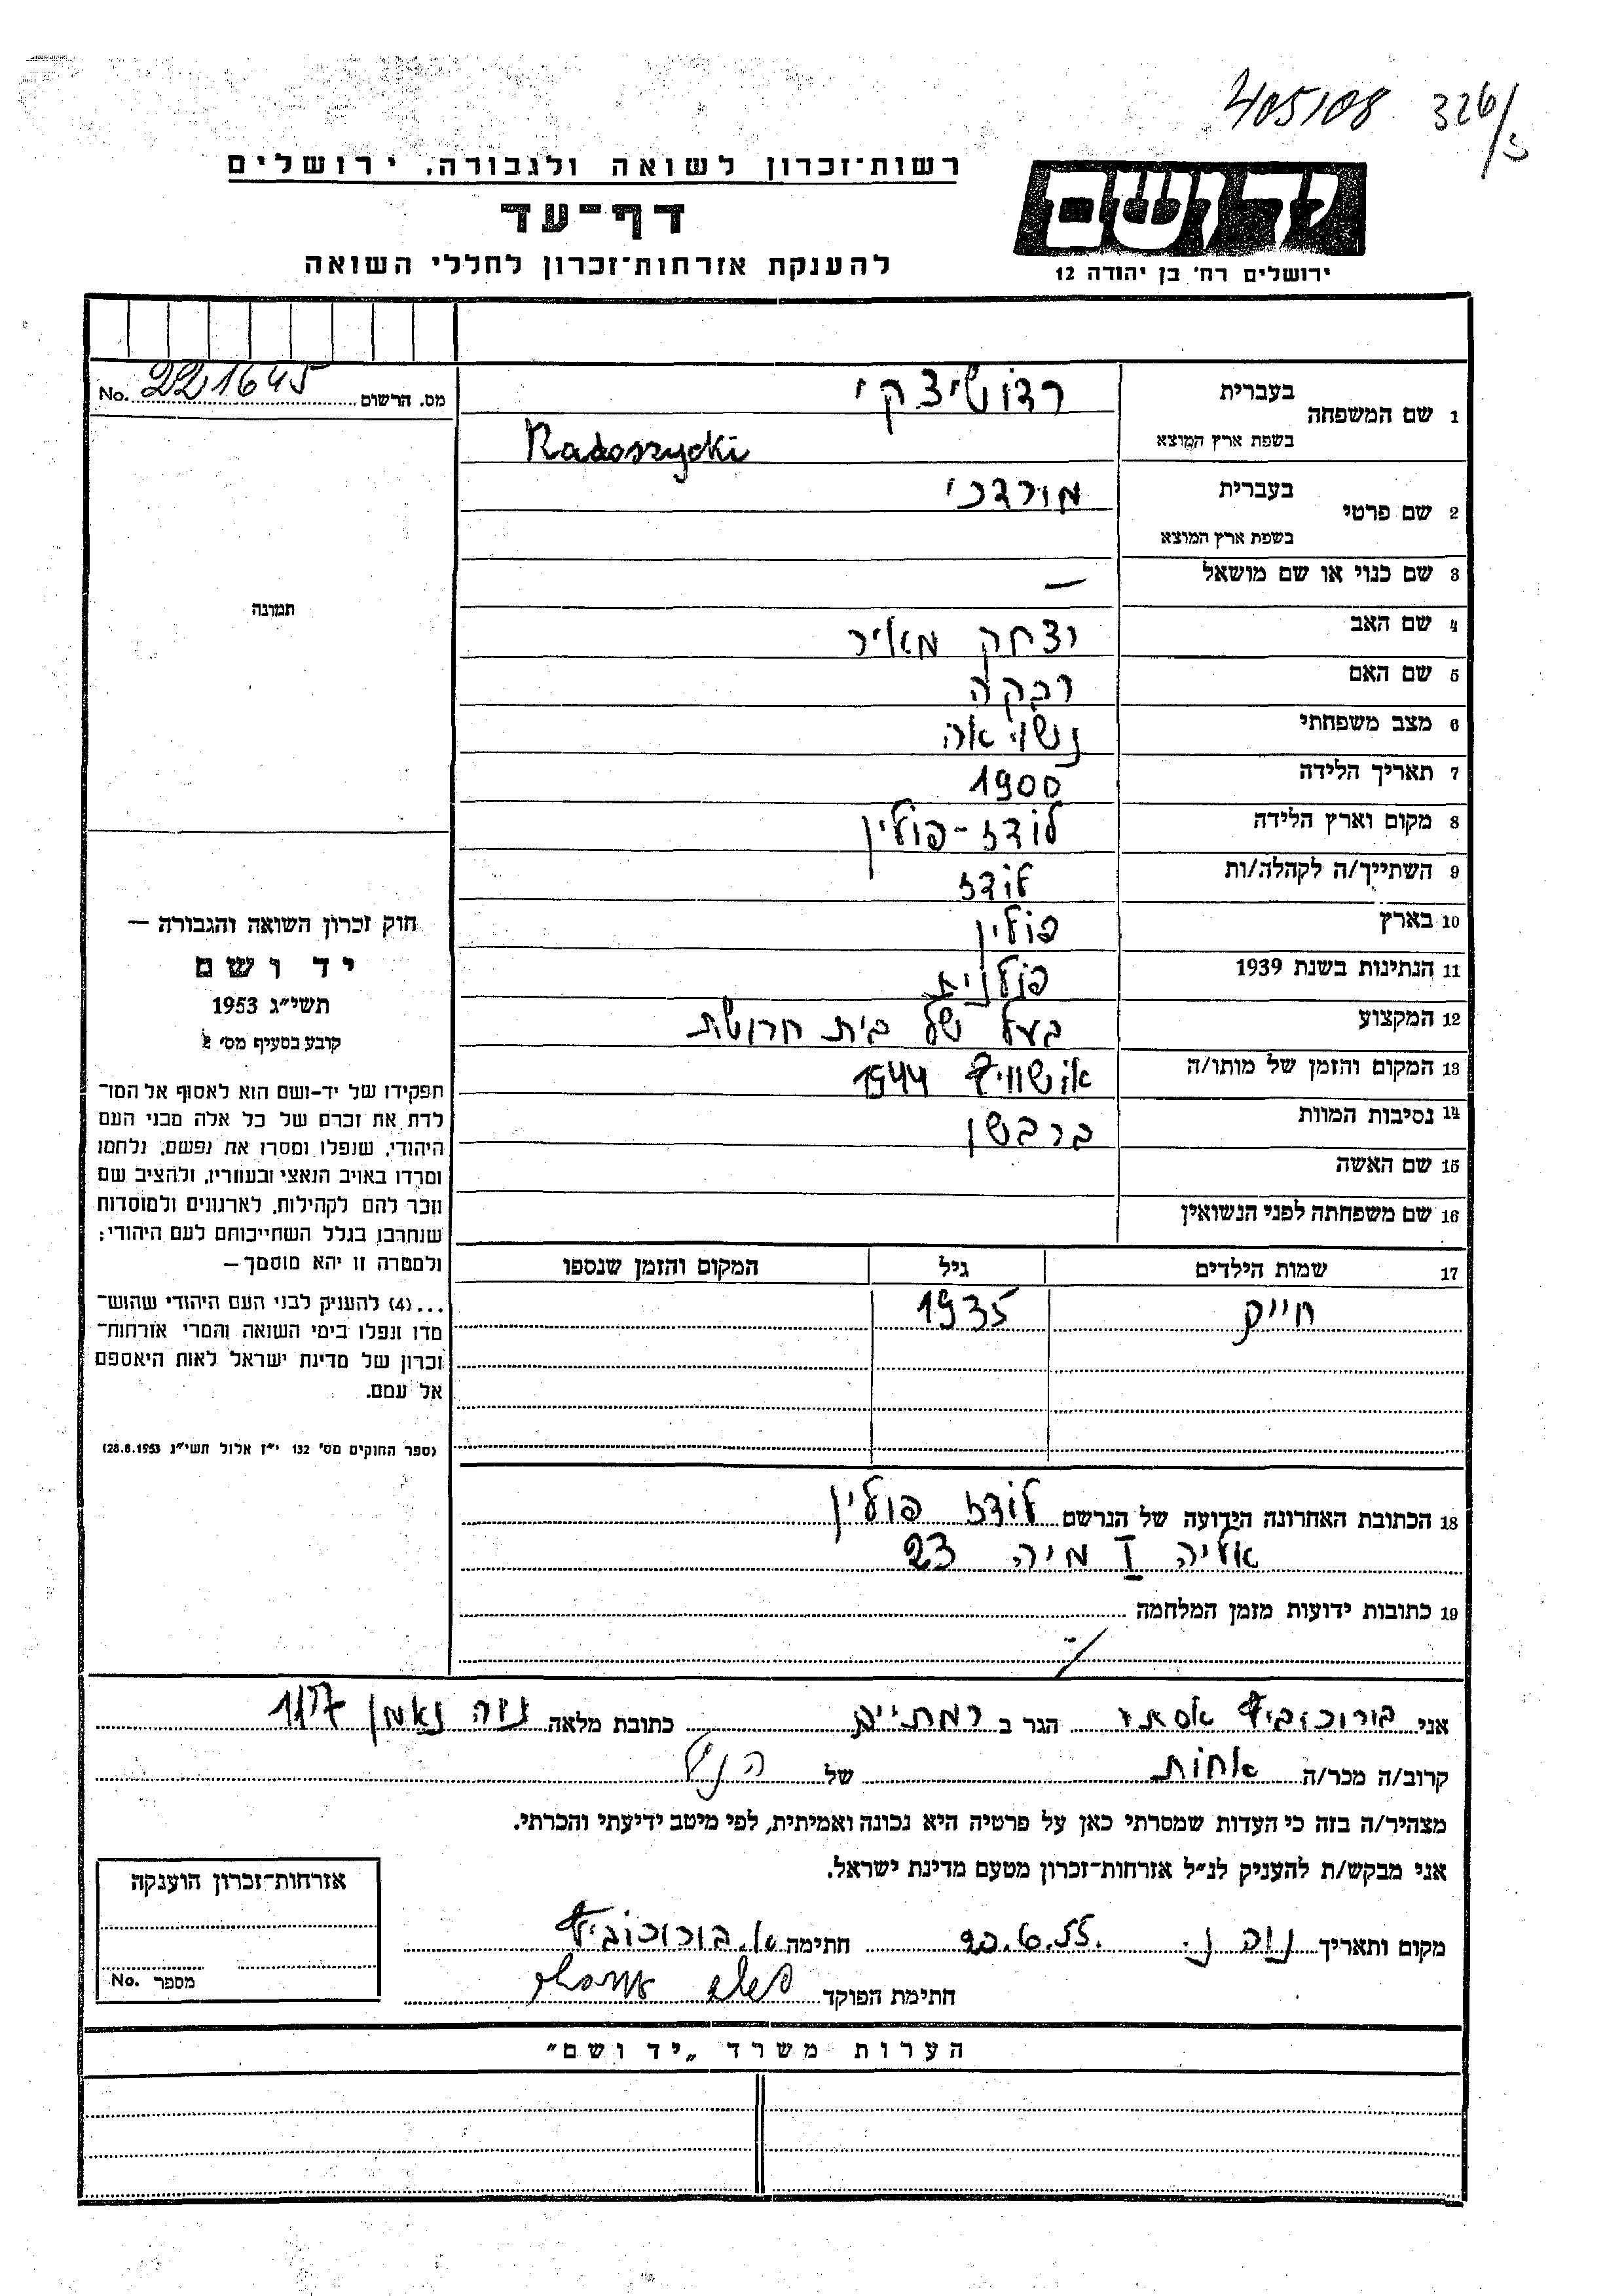 405108 326/5
רשות־זכרון לשואה ולגבורה, ירושלים
דף־עד
להענקת אזרחות־זכרון לחללי השואה
ידושם
ירושלים רח' בן יהודה 12
מס. הרשום No. 221645
1 שם המשפחה בעברית רדושיצקי
בשפת ארץ המוצא Radoszycki
2 שם פרטי בעברית מורדכי
בשפת ארץ המוצא
3 שם כנוי או שם מושאל —
4 שם האב יצחק מאיר
5 שם האם רבקה
6 מצב משפחתי נשוי אה
7 תאריך הלידה 1900
8 מקום וארץ הלידה לודז-פולין
9 השתייך/ה לקהלה/ות לודז
10 בארץ פולין
11 הנתינות בשנת 1939 פולנית
12 המקצוע בעל של בית חרושת
13 המקום והזמן של מותו/ה אושוויץ 1944
14 נסיבות המוות
15 שם האשה
16 שם משפחתה לפני הנשואין
17 שמות הילדים גיל המקום והזמן שנספו
חיים 1935
18 הכתובת האחרונה הידועה של הנרשם לודז פולין
אליה I מיה 23
19 כתובות ידועות מזמן המלחמה
תמונה
חוק זכרון השואה והגבורה —
יד ושם
תשי"ג 1953
קובע בסעיף מס' 2
תפקידו של יד-ושם הוא לאסוף אל המו־
לדת את זכרם של כל אלה מבני העם
היהודי, שנפלו ומסרו את נפשם, נלחמו
ומרדו באויב הנאצי ובעוזריו, ולהציב שם
וזכר להם לקהילות, לארגונים ולמוסדות
שנחרבו בגלל השתייכותם לעם היהודי;
ולמטרה זו יהא מוסמך —
...(4) להעניק לבני העם היהודי שהוש־
מדו ונפלו בימי השואה והמרי אזרחות־
זכרון של מדינת ישראל לאות היאספם
אל עמם.
(ספר החוקים מס' 132 י"ז אלול תשי"ג 28.8.1953)
אני בורוכוביץ אסתר הגר ב רמתיים כתובת מלאה נוה נאמן 117
קרוב/ה מכר/ה אחות של הנ"ל
מצהיר/ה בזה כי העדות שמסרתי כאן על פרטיה היא נכונה ואמיתית, לפי מיטב ידיעתי והכרתי.
אני מבקש/ת להעניק לנ"ל אזרחות־זכרון מטעם מדינת ישראל.
מקום ותאריך נוה נ. 20.6.55 חתימה א. בורוכוביץ
חתימת הפוקד
אזרחות־זכרון הוענקה
מספר No.
הערות משרד „יד ושם"